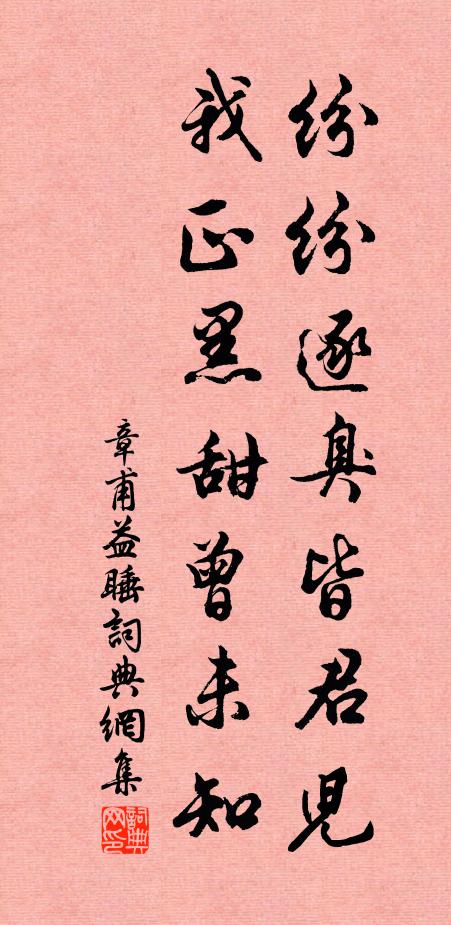 紛紛逐臭皆君兒
我正黑甜曾未知
章甫益睡詞典網集
詞典网印